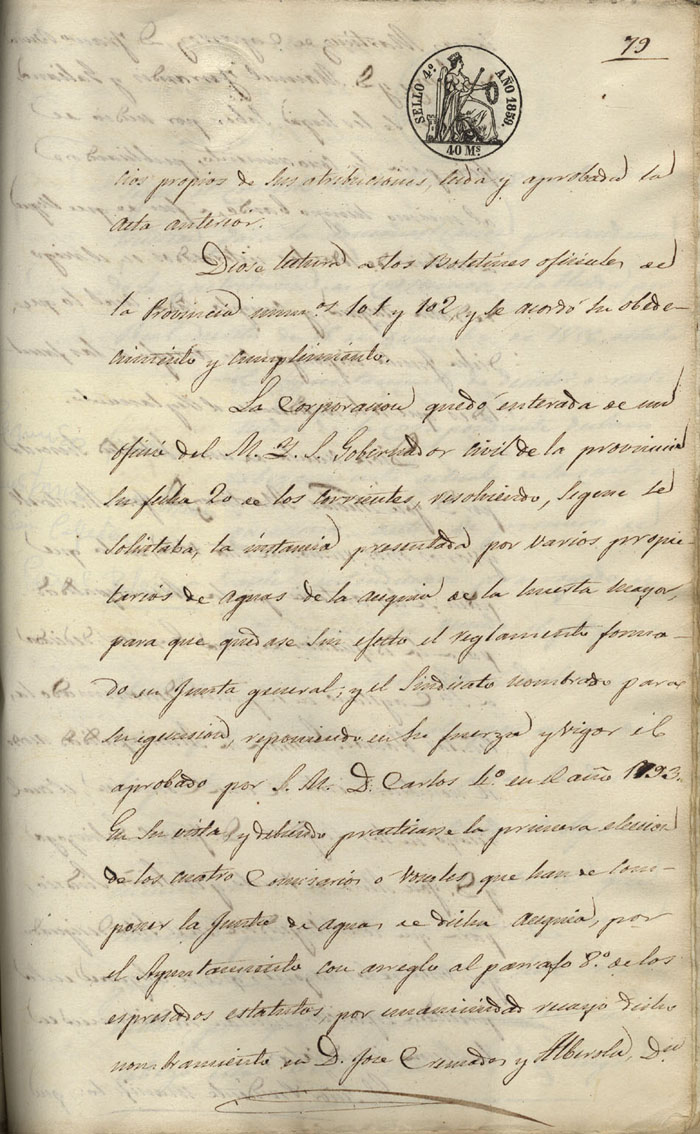 79
SELLO 4º AÑO 1859.
40 Ms.
cios propios de sus atribuciones, leida y aprobada la
acta anterior.
Diose lectura a los Boletines oficiales de
la Provincia numos. 101 y 102, y se acordó su obede-
cimiento y cumplimiento.
La Corporacion quedó enterada de un
oficio del M. Y. S. Gobernador civil de la provincia
su fecha 20 de los corrientes, resolviendo, segun se
solicitaba, la instancia presentada por varios propie-
tarios de aguas de la acequia de la huerta mayor,
para que quedase sin efecto el reglamento forma-
do en Junta general; y el Sindicato nombrado para
su egecusion, reponiendo en su fuerza y vigor el
aprobado por S. M. D. Carlos 4º en el año 1793.
En su vista, y debiendo practicarse la primera eleccion
de los cuatro Comisarios o Vocales que han de com-
poner la Junta de aguas de dicha acequia, por
el Ayuntamiento con arreglo al parrafo 8º de los
espresados estatutos, por unanimidad recayó dicho
nombramiento en D. Jose Cremades y Alberola, Dn